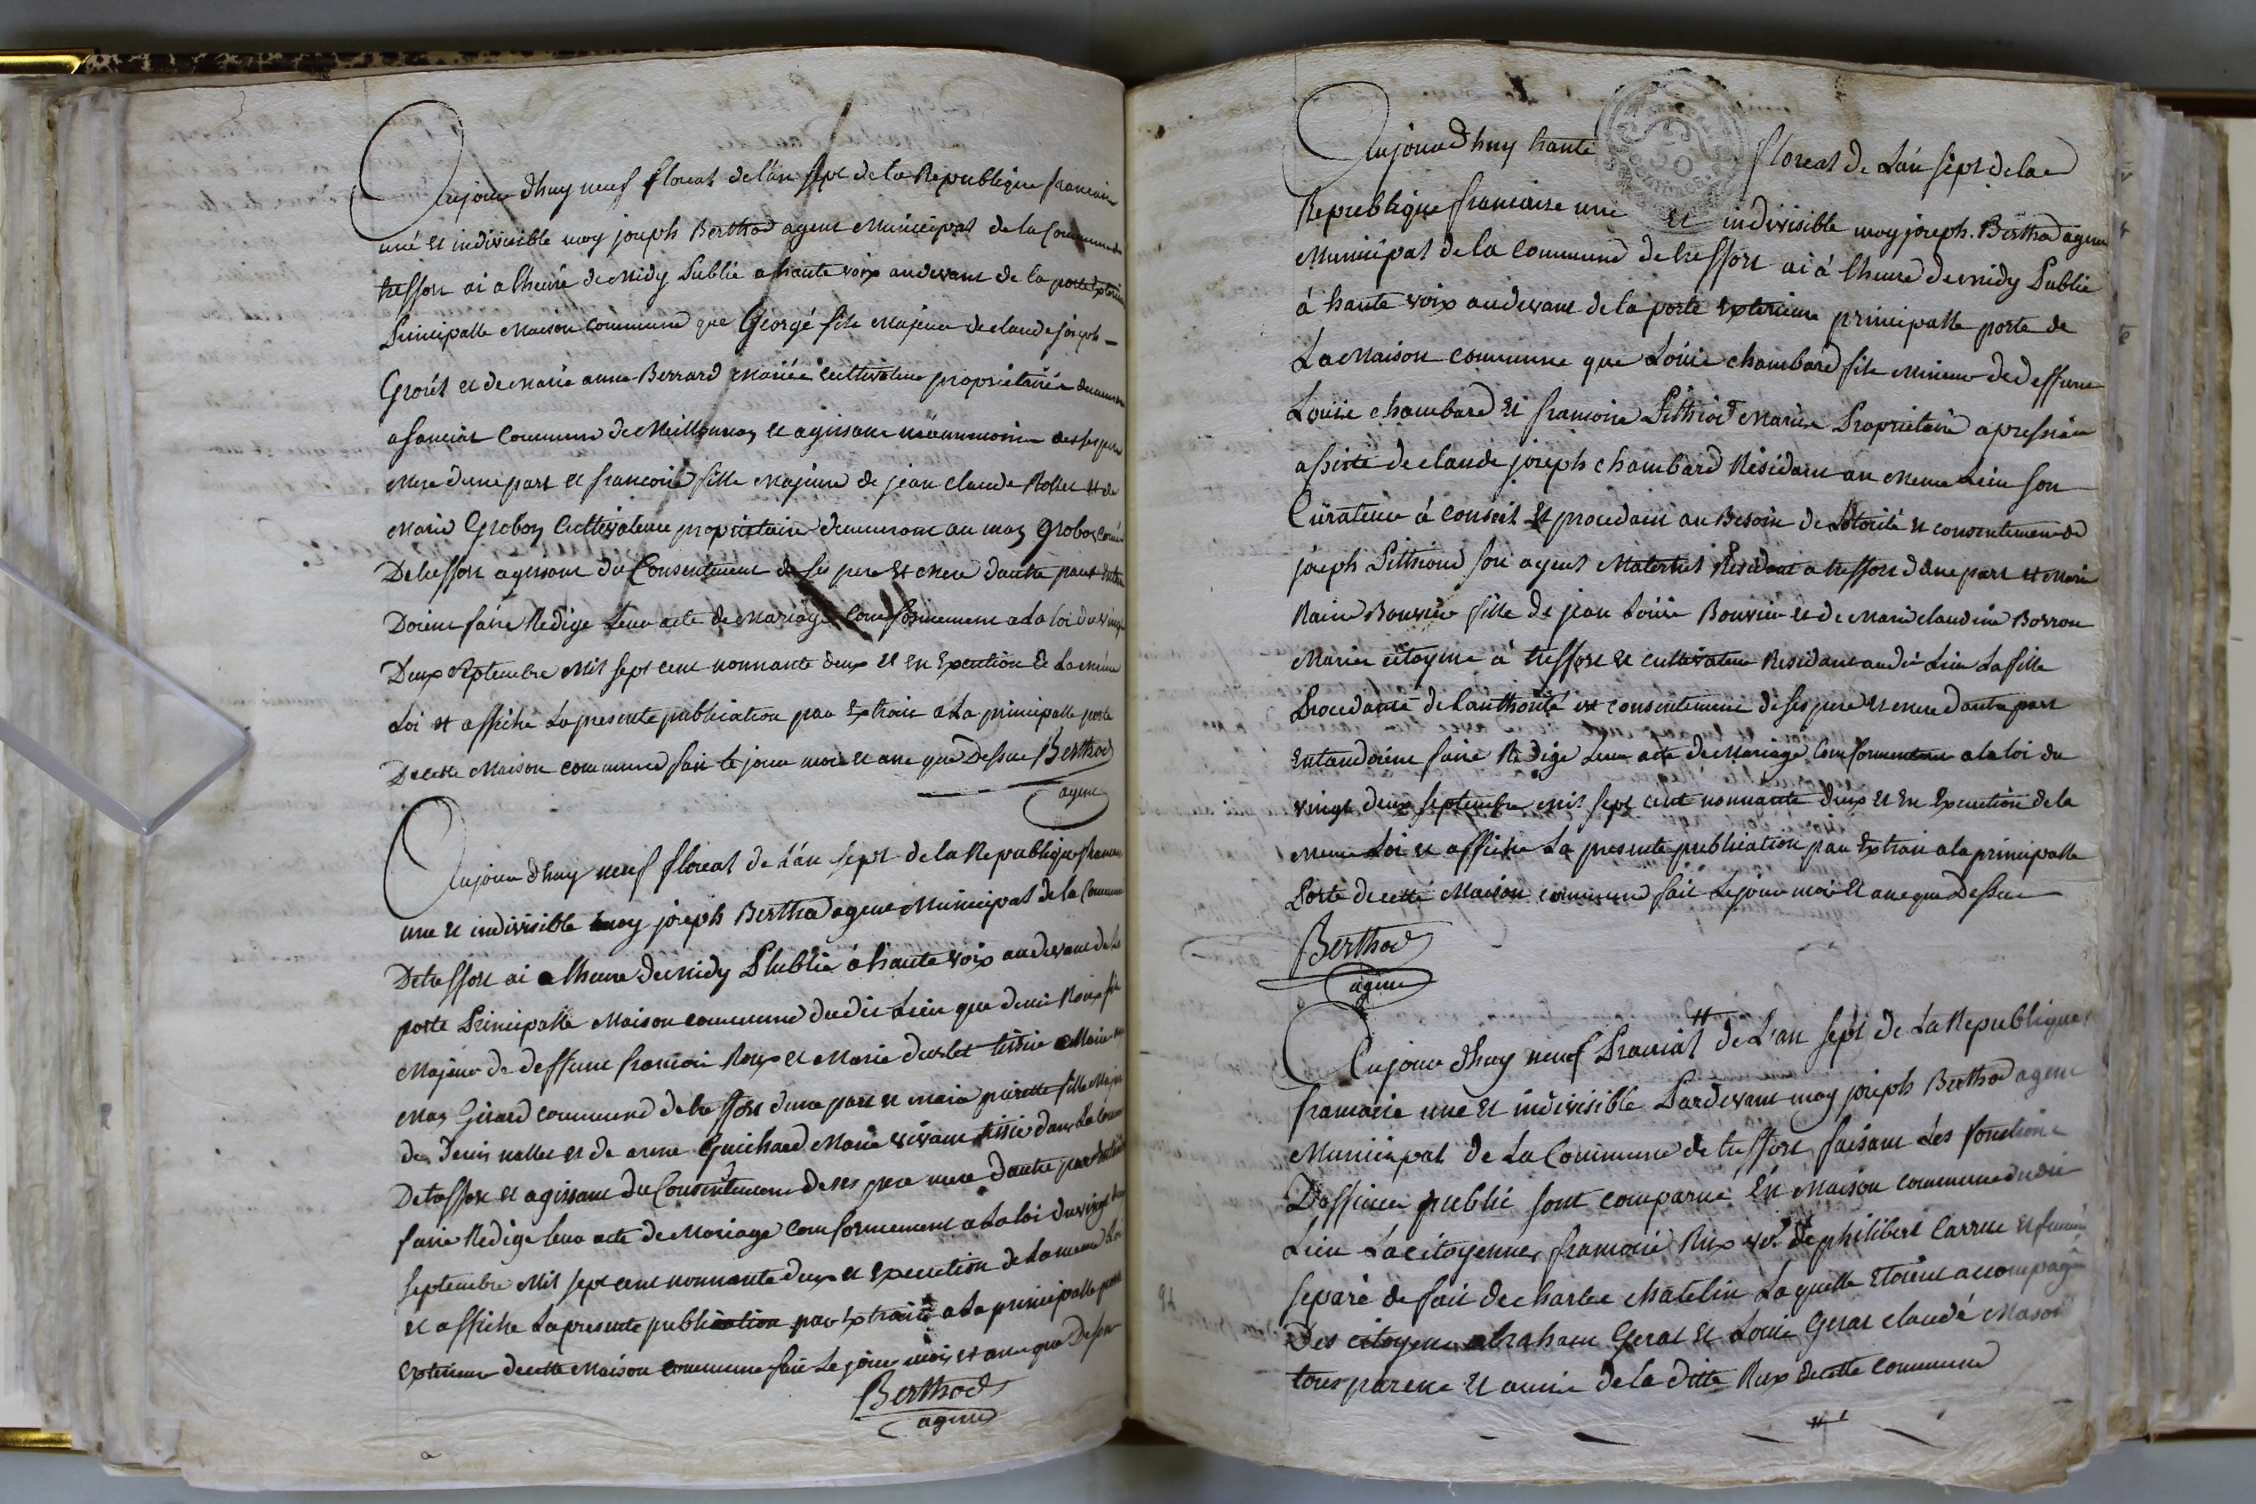 Aujourdhuy neuf floreal de l'an sept de la Republique francaise
une et indivisible moy joseph Berthod agent Municipal de la Commune de
treffort ai a lheure de Midy Publié a haute voix audevant de la porte Exterieure
Principalle Maison commune que Georgé fils Majeur de claude joseph
et de Marie anne Berrard Mariés cultivateur proprietaires
commune de Meillonnas et agissant
Mere dune part et francoise fille Majeure de jean claude Rollet et de
Marie Groboz Cultivateur proprietaire demeurant au mas Groboz
De treffort agissant du Consentement de ses pere et mere dautre part
Doient faire Redige Leur acte de Mariage Conformement a la loi du vingt
Deux septembre Mil sept cent nonnante deux et en Execution de La meme
Loi et affiche La presente publication par Extrait a La principalle porte
De cette Maison commune fait le jour mois et an que Dessus Berthod
agent
Aujourdhuy neuf floreal de L'an sept de la Republique francaise
une et indivisible moy joseph Berthod agent Municipal de la Commune
De treffort ai a lheure de midy Publié a haute voix audevant de la
porte Principalle Maison commune dudit Lieu que denis Roux fils
Majeur de deffunt francois Roux et Marie
Mas Girard commune de treffort dune part et marie pierrette fille Majeure
de denis nallet et de anne Guichard Marié vivant dans La Commune
De treffort et agissant du Consentement de ses pere mere dautre part
faire Redige leur acte de Mariage conformement a La loi du vingt deux
septembre Mil sept cent nonnante deux et Execution de La meme Loi
et affiche La presente publication par Extrait a La principalle porte
Exterieure de cette Maison commune fait Le jour mois et an que Dessus
Berthod
agent
Aujourdhuy trante floreal de L'an sept de la
Republique francaise une et indivisible moy joseph Berthod agent
Municipal de la commune de treffort ai à lheure de midy Publié
à haute voix audevant de la porte Exterieure principalle porte de
La Maison commune que Louis chambard fils Mineur de deffunt
Louis chambard et francoise Pithiod Mariés Proprietaire
assisté de claude joseph chambard Residant au Meme Lieu son
Curateur à conseil et procedant au Besoin de Lotorité et consentement de
joseph Pithiod son ayeul Maternel Residant a treffort dune part et Marie
Bouvier fille de jean Louis Bouvier et de Marie claudine Borron
Mariés citoyens à treffort et cultivateur Residant audit Lieu La fille
Procedante de Lauthorité et consentement de ses pere et mere dautre part
Entandoient faire Redige Leur acte de Mariage Conformement a la loi du
vingt deux septembre mil sept cent nonnante deux et En Execution de la
meme Loi et affiche La presente publication par Extrait a la principalle
Porte de cette Maison commune fait Le jour mois et an que Dessus
Berthod
agent
Aujourdhuy neuf Prairial de L'an sept de La Republique
francaise une et indivisible Pardevant moy joseph Berthod agent
Municipal de La Commune de treffort faisant Les fonctions
D'officier public sont comparue En Maison commune dudit
Lieu La citoyenne francoise Rux ve. de philibert Carrue et femme
separé de fait de charles Matelin Laquelle Etoient accompagné
Des citoyens abraham Gerat et Louis Gerat claudé Mason
tous parens et amis de la ditte Rux de cette commune